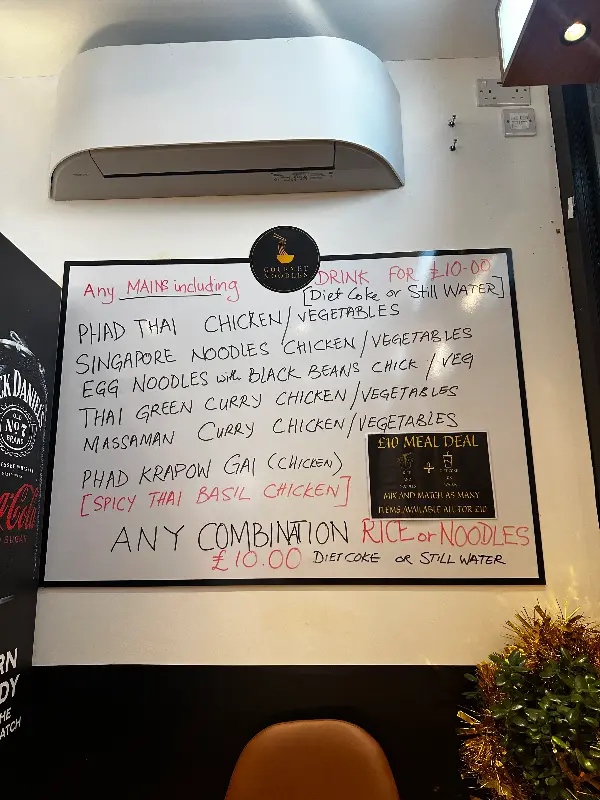 GOURMET
NOODLES
Any MAINS including DRINK FOR £10-00
[Diet Coke or Still WATER]
PHAD THAI CHICKEN/VEGETABLES
SINGAPORE NOODLES CHICKEN/VEGETABLES
EGG NOODLES with BLACK BEANS CHICK/VEG
THAI GREEN CURRY CHICKEN/VEGETABLES
MASSAMAN CURRY CHICKEN/VEGETABLES
PHAD KRAPOW GAI (CHICKEN)
[SPICY THAI BASIL CHICKEN]
£10 MEAL DEAL
+
MIX AND MATCH AS MANY
ITEMS AVAILABLE ALL FOR £10
ANY COMBINATION RICE or NOODLES
£10.00 DIET COKE OR STILL WATER
CK DANIEL
OLD
No 7
BRAND
Coca
SUGAR
RN
DY
HE
ATCH